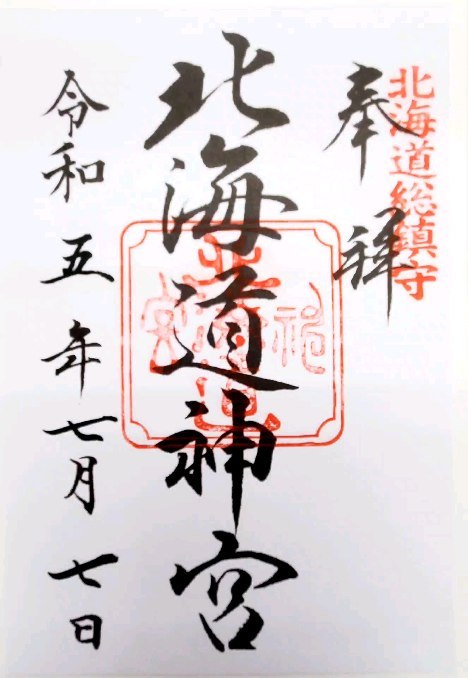 北海道総鎮守
奉拝
北海道神宮
令和五年七月七日